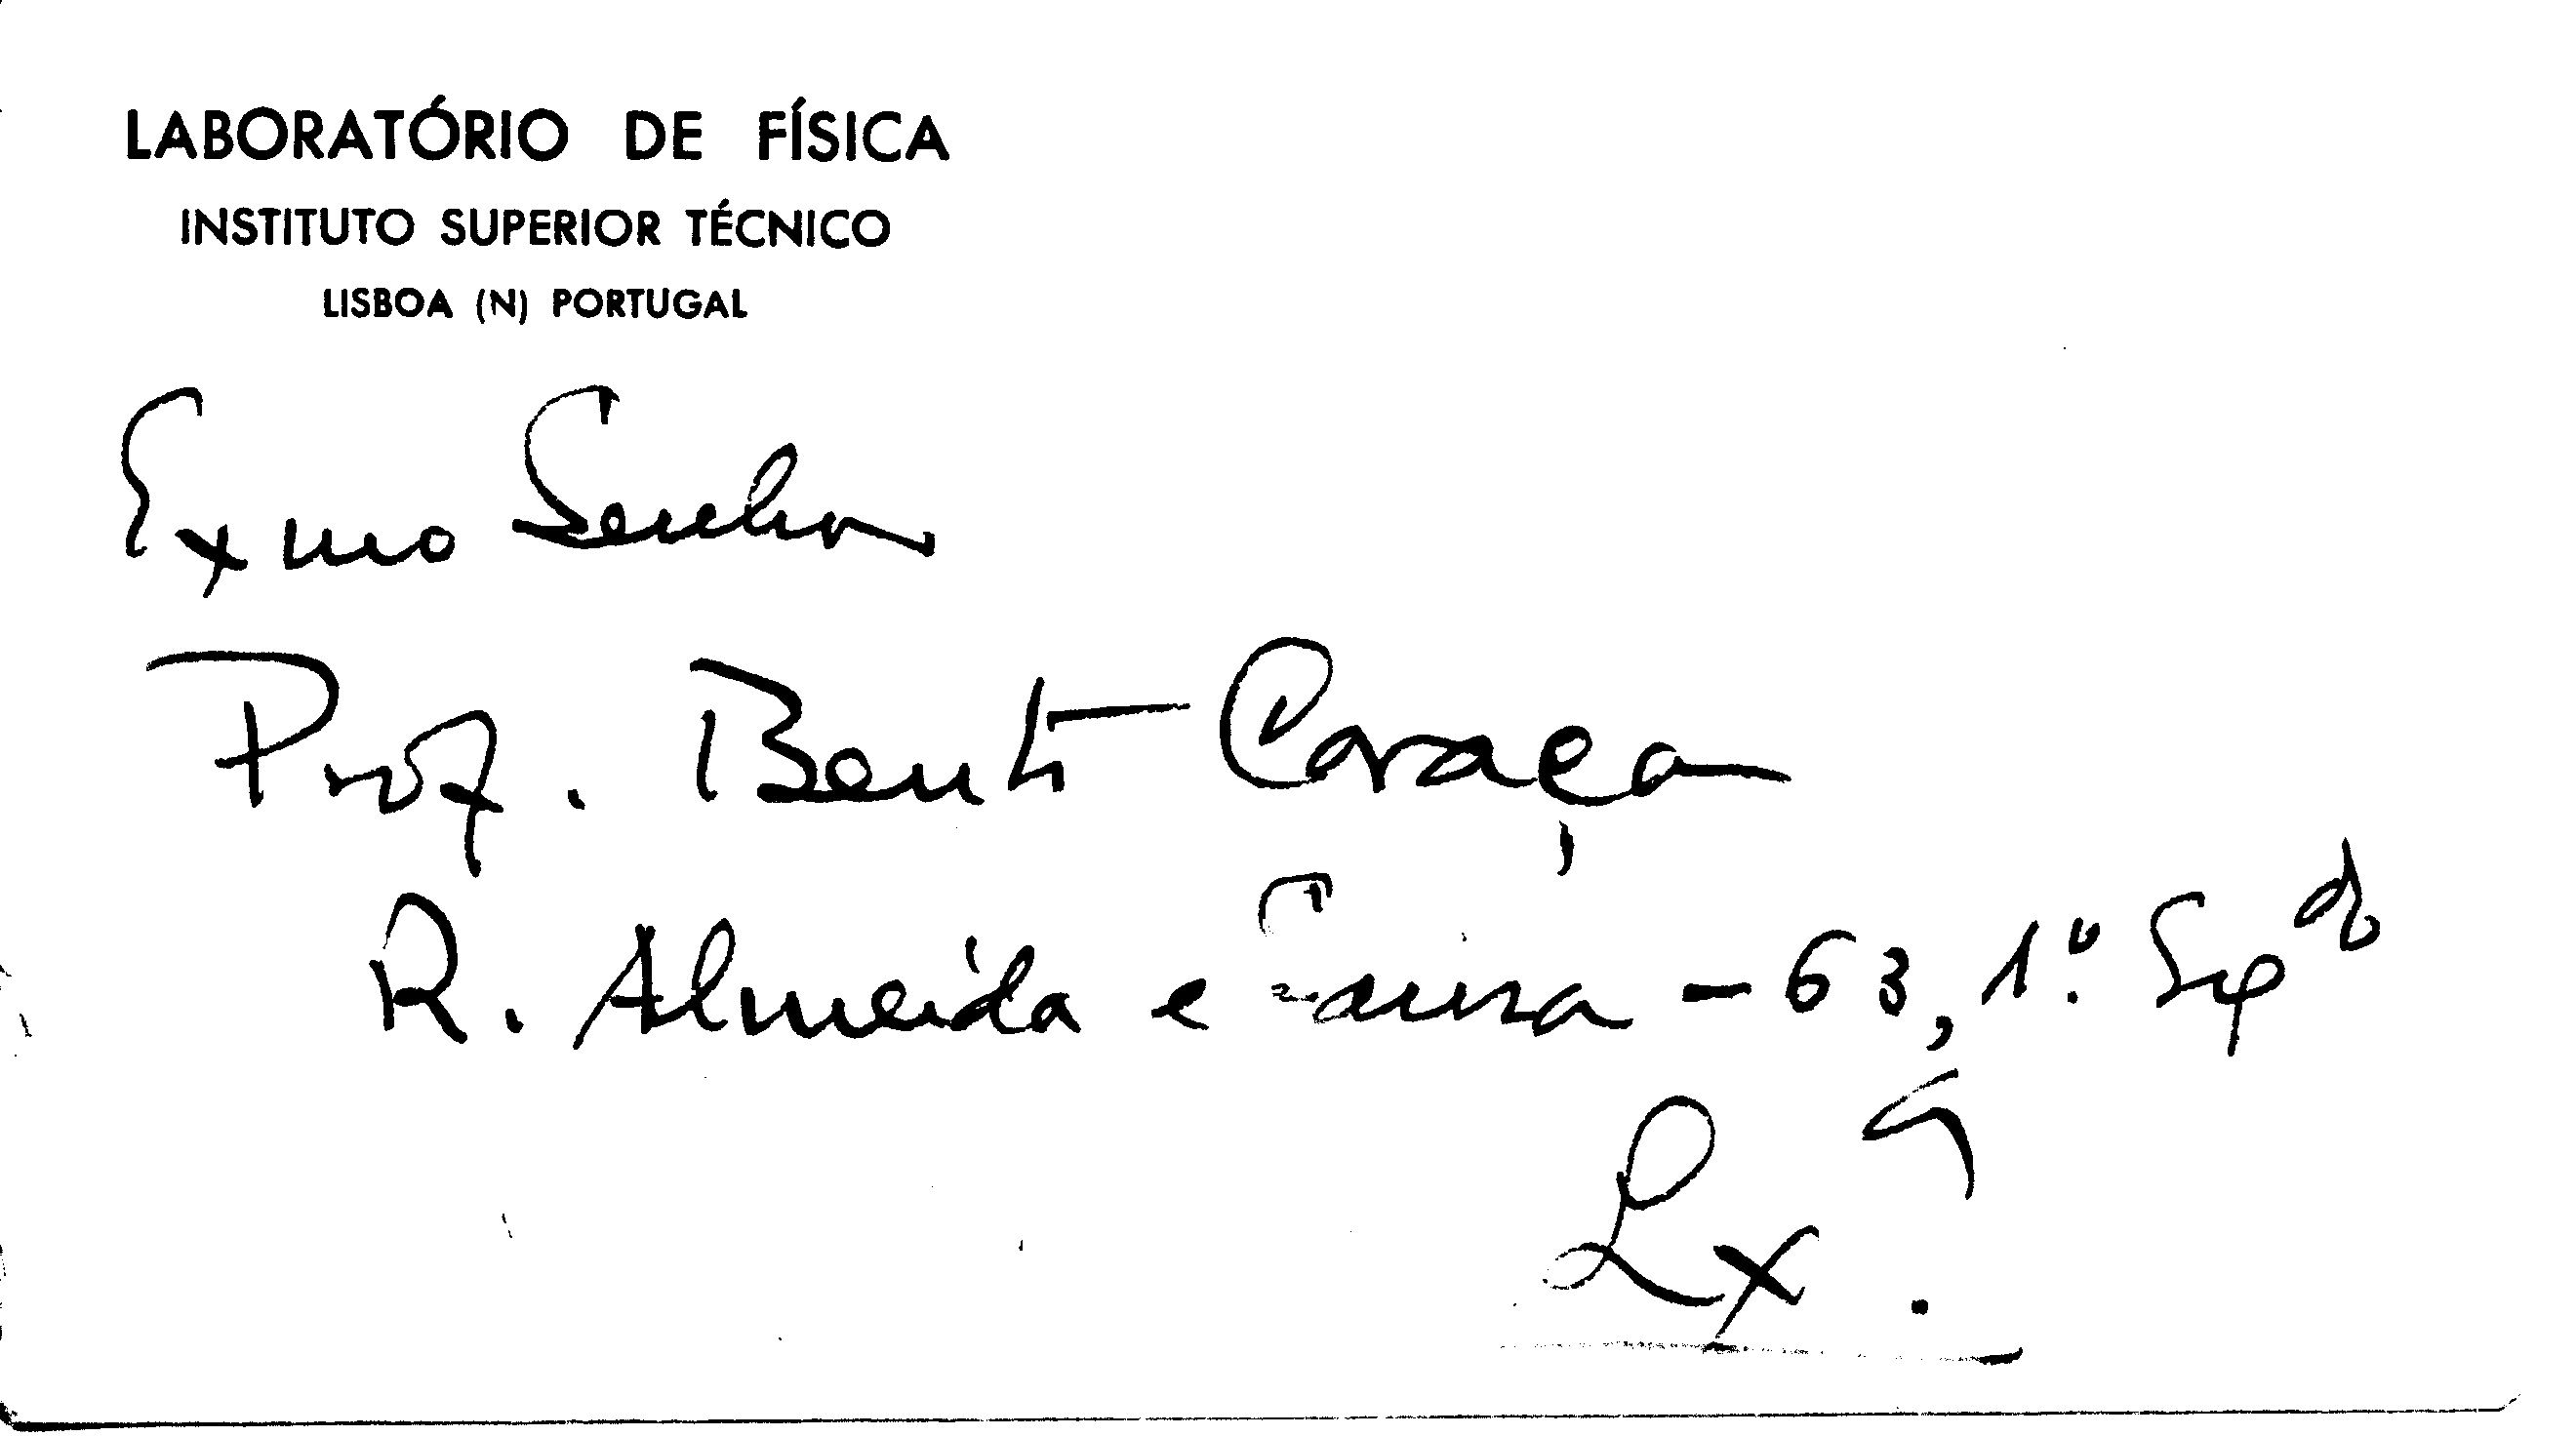 LABORATÓRIO DE FÍSICA
INSTITUTO SUPERIOR TÉCNICO
LISBOA (N) PORTUGAL
Exmo Senhor
Prof. Bento Caraça
R. Almeida e Sousa - 63, 1.º Esq do
Lx.ª